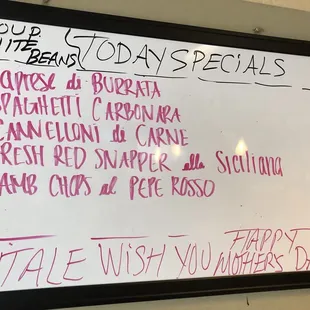 OUP
HITE
BEANS
TODAY SPECIALS
aprese di BURRATA
SPAGHETTI CARBONARA
CANNELLONI di CARNE
FRESH RED SNAPPER alla Siciliana
LAMB CHOPS al PEPE ROSSO
ITALE WISH YOU HAPPY
MOTHERS DA